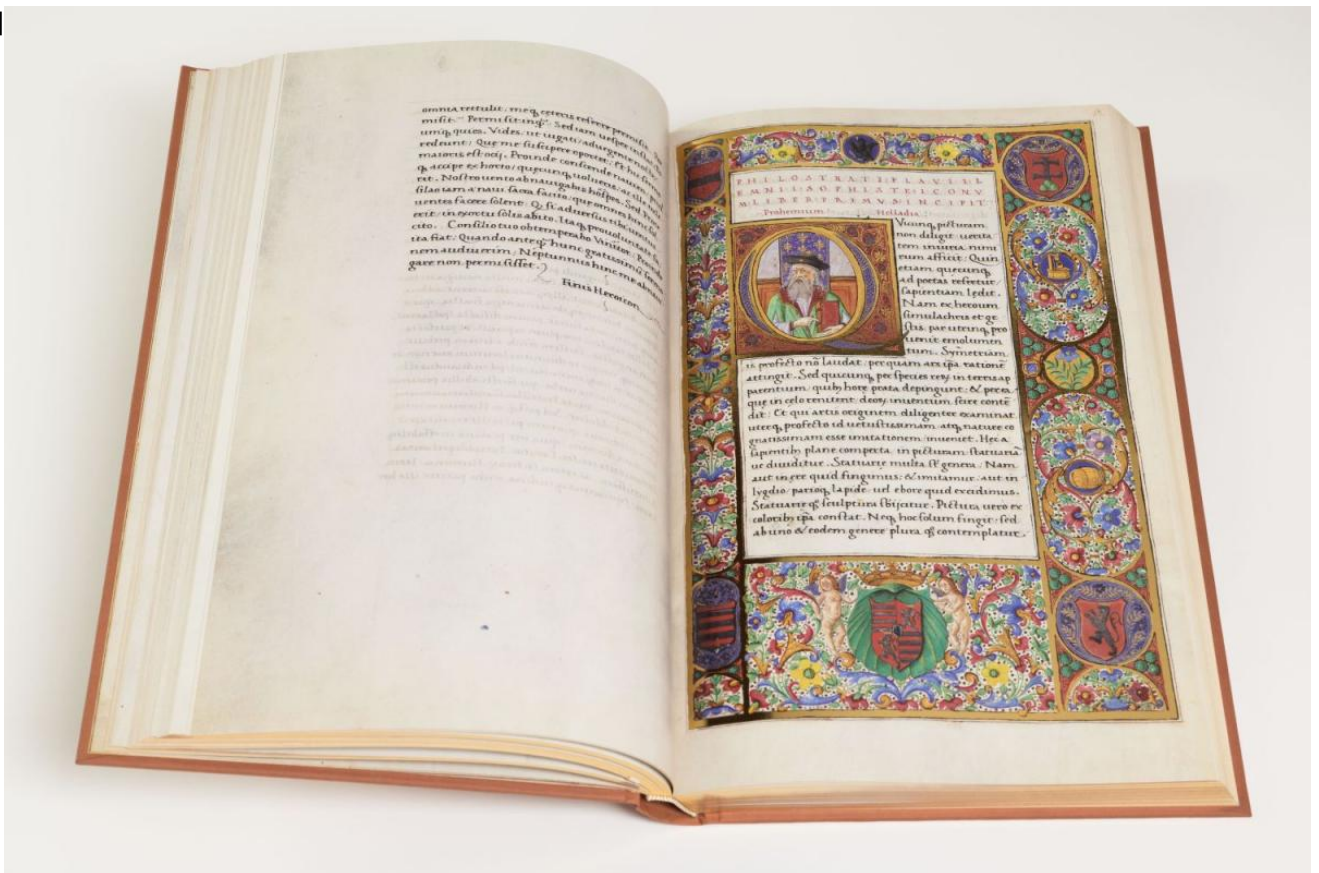 omnia rettulit. meq̃ ceteris referre permisit.
misit. Permisit inq̃. Sed iam uesper
uniq̃ quies. Vides, ut uigati adurgente
redeunt: Que me suscipere oportet. Et hic
maioris est ocij. Proinde conscende nauem,
q̃ accipe ex horto, quęcunq̃ uoluerit, ac ille
rit. Nostro uento abnauigabis hospes. Sed
silao iam a naui sacra facito, que omnes hinc
uentes facere solent: Q, si aduersus tibi uentus
erit, in exortu solis abito. Itaq̃ pro uoluntate
cito. Consilio tuo obtemperabo Vinitor:
ita fiat: Quando anteq̃ hunc gratiosum
nem audiuerim, Neptunnius hinc me
gare non permisisset.
Finis Heroicon
PHILOSTRATI FLAVII L
EMNII SOPHISTE ICONV
M LIBER PREMVS INCIPIT
Prohemium Helladia
Vicunq̃ picturam
non diligit: uerita
tem iniuria nimi
rum afficit: Quin
etiam quęcunq̃
ad poetas refertur,
sapientiam lędit.
Nam ex heroum
simulachris et ge
stis. par utrinq̃ pro
uenit emolumen
tum. Sȳmetriam
is profecto nō laudat, per quam ars ip̃a rationē
attingit. Sed quicunq̃ per species reꝝ in terris ap
parentium, quib; hore prata depingunt: & per ea
que in celo renitent: deoꝝ inuentum scire contē
dit: Et qui artis originem diligenter examinat
uterq̃ profecto id uetustissimam atq̃ nature co
gnatissimam esse imitationem inueniet. Hec a
sapientib; plane comperta, in picturam, statuariā
uc diuiditur. Statuarie multa st̃ genera: Nam
aut in ęre quid fingimus: & imitamur: aut in
lygdio, parioq̃ lapide: uel ebore quid excidimus.
Statuarie q̃ sculptura sbijcitur. Pictura uero ex
colorib; ip̃a constat. Neq̃ hoc solum fingit: sed
ab uno & eodem genere plura q̃ contemplatur.